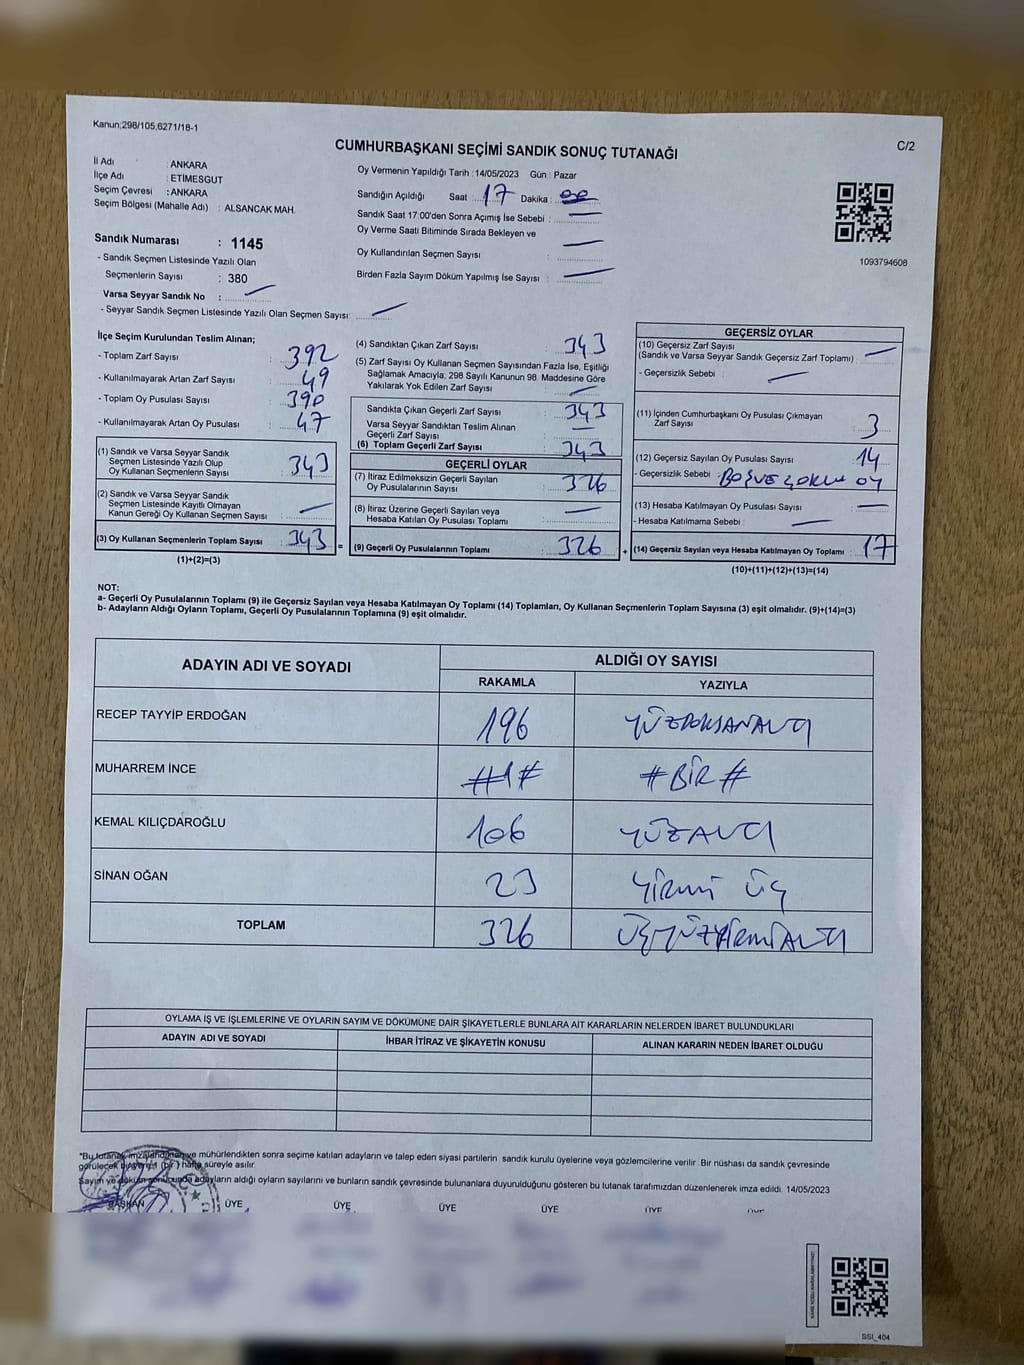 Kanun;298/105,6271/18-1
C/2
CUMHURBAŞKANI SEÇİMİ SANDIK SONUÇ TUTANAĞI
İl Adı : ANKARA
İlçe Adı : ETİMESGUT
Seçim Çevresi : ANKARA
Seçim Bölgesi (Mahalle Adı) : ALSANCAK MAH.
Oy Vermenin Yapıldığı Tarih : 14/05/2023 Gün : Pazar
Sandığın Açıldığı Saat : 17 Dakika :
Sandık Saat 17:00'den Sonra Açımış İse Sebebi : —
Oy Verme Saati Bitiminde Sırada Bekleyen ve
Oy Kullandırılan Seçmen Sayısı : —
Birden Fazla Sayım Döküm Yapılmış İse Sayısı : —
1093794608
Sandık Numarası : 1145
- Sandık Seçmen Listesinde Yazılı Olan
Seçmenlerin Sayısı : 380
Varsa Seyyar Sandık No : —
- Seyyar Sandık Seçmen Listesinde Yazılı Olan Seçmen Sayısı: —
İlçe Seçim Kurulundan Teslim Alınan;
- Toplam Zarf Sayısı : 392
- Kullanılmayarak Artan Zarf Sayısı : 49
- Toplam Oy Pusulası Sayısı : 390
- Kullanılmayarak Artan Oy Pusulası : 47
(1) Sandık ve Varsa Seyyar Sandık
Seçmen Listesinde Yazılı Olup
Oy Kullanan Seçmenlerin Sayısı : 343
(2) Sandık ve Varsa Seyyar Sandık
Seçmen Listesinde Kayıtlı Olmayan
Kanun Gereği Oy Kullanan Seçmen Sayısı : —
(3) Oy Kullanan Seçmenlerin Toplam Sayısı : 343
(1)+(2)=(3)
(4) Sandıktan Çıkan Zarf Sayısı : 343
(5) Zarf Sayısı Oy Kullanan Seçmen Sayısından Fazla İse, Eşitliği
Sağlamak Amacıyla, 298 Sayılı Kanunun 98. Maddesine Göre
Yakılarak Yok Edilen Zarf Sayısı : —
Sandıkta Çıkan Geçerli Zarf Sayısı : 343
Varsa Seyyar Sandıktan Teslim Alınan
Geçerli Zarf Sayısı : —
(6) Toplam Geçerli Zarf Sayısı : 343
GEÇERLİ OYLAR
(7) İtiraz Edilmeksizin Geçerli Sayılan
Oy Pusulalarının Sayısı : 326
(8) İtiraz Üzerine Geçerli Sayılan veya
Hesaba Katılan Oy Pusulası Toplamı : —
= (9) Geçerli Oy Pusulalarının Toplamı : 326 +
GEÇERSİZ OYLAR
(10) Geçersiz Zarf Sayısı
(Sandık ve Varsa Seyyar Sandık Geçersiz Zarf Toplamı) : —
- Geçersizlik Sebebi : —
(11) İçinden Cumhurbaşkanı Oy Pusulası Çıkmayan
Zarf Sayısı : 3
(12) Geçersiz Sayılan Oy Pusulası Sayısı : 14
- Geçersizlik Sebebi : BOŞ VE ÇOKLU OY
(13) Hesaba Katılmayan Oy Pusulası Sayısı : —
- Hesaba Katılmama Sebebi : —
(14) Geçersiz Sayılan veya Hesaba Katılmayan Oy Toplamı : 17
(10)+(11)+(12)+(13)=(14)
NOT:
a- Geçerli Oy Pusulalarının Toplamı (9) ile Geçersiz Sayılan veya Hesaba Katılmayan Oy Toplamı (14) Toplamları, Oy Kullanan Seçmenlerin Toplam Sayısına (3) eşit olmalıdır. (9)+(14)=(3)
b- Adayların Aldığı Oyların Toplamı, Geçerli Oy Pusulalarının Toplamına (9) eşit olmalıdır.
ADAYIN ADI VE SOYADI ALDIĞI OY SAYISI
RAKAMLA YAZIYLA
RECEP TAYYİP ERDOĞAN 196 YÜZDOKSANALTI
MUHARREM İNCE #1# #BİR#
KEMAL KILIÇDAROĞLU 106 YÜZALTI
SİNAN OĞAN 23 YİRMİ ÜÇ
TOPLAM 326 ÜÇYÜZYİRMİALTI
OYLAMA İŞ VE İŞLEMLERİNE VE OYLARIN SAYIM VE DÖKÜMÜNE DAİR ŞİKAYETLERLE BUNLARA AİT KARARLARIN NELERDEN İBARET BULUNDUKLARI
ADAYIN ADI VE SOYADI İHBAR İTİRAZ VE ŞİKAYETİN KONUSU ALINAN KARARIN NEDEN İBARET OLDUĞU
*Bu tutanak imzalandıktan ve mühürlendikten sonra seçime katılan adayların ve talep eden siyasi partilerin sandık kurulu üyelerine veya gözlemcilerine verilir. Bir nüshası da sandık çevresinde
görülecek bir yere 1 (bir) hafta süreyle asılır.
Sayım ve döküm sonucunda adayların aldığı oyların sayılarını ve bunların sandık çevresinde bulunanlara duyurulduğunu gösteren bu tutanak tarafımızdan düzenlenerek imza edildi. 14/05/2023
BAŞKAN ÜYE ÜYE ÜYE ÜYE ÜYE ÜYE
SSI_404